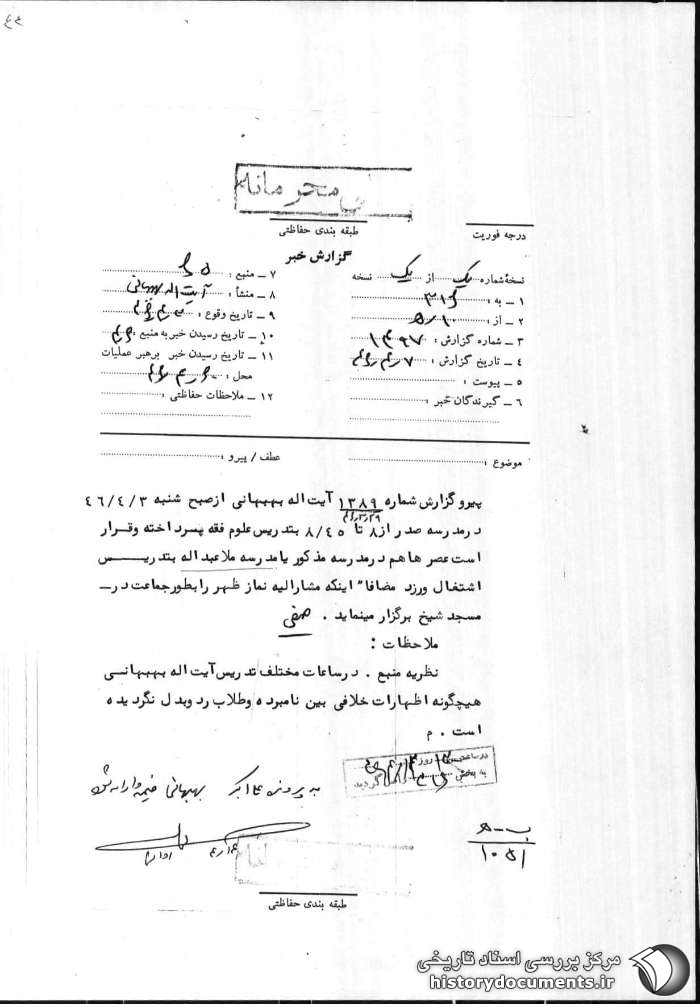 محرمانه
طبقه بندی حفاظتی
درجه فوریت
گزارش خبر
نسخهٔ شماره یک از یک نسخه
۱ ـ به : ۳۱۶
۲ ـ از : ۵/۱۰
۳ ـ شماره گزارش : ۱۴۹۷
۴ ـ تاریخ گزارش :
۵ ـ پیوست :
۶ ـ گیرندگان خبر :
۷ ـ منبع :
۸ ـ منشأ : آیت اله بهبهانی
۹ ـ تاریخ وقوع :
۱۰ ـ تاریخ رسیدن خبر به منبع :
۱۱ ـ تاریخ رسیدن خبر برهبر عملیات
محل :
۱۲ ـ ملاحظات حفاظتی :
موضوع :
عطف / پیرو :
پیرو گزارش شماره ۱۳۸۹ آیت اله بهبهانی ازصبح شنبه ۴۶/۴/۳
درمدرسه صدر از ۸ تا ۸/۴۵ بتدریس علوم فقه پسرداخته وقرار
است عصرها هم درمدرسه مذکور یا مدرسه ملاعبداله بتدریس
اشتغال ورزد مضافا" اینکه مشارالیه نماز ظهر را بطورجماعت در
مسجد شیخ برگزار مینماید .
ملاحظات :
نظریه منبع . درساعات مختلف تدریس آیت اله بهبهانی
هیچگونه اظهارات خلافی بین نامبرده وطلاب رد وبدل نگردیده
است . م
در ساعت روز
به بخش گردید
به پرونده بهبهانی ضمیمه و ارائه شود
ب - ه
۱۰۵۱
طبقه بندی حفاظتی
مرکز بررسی اسناد تاریخی
historydocuments.ir